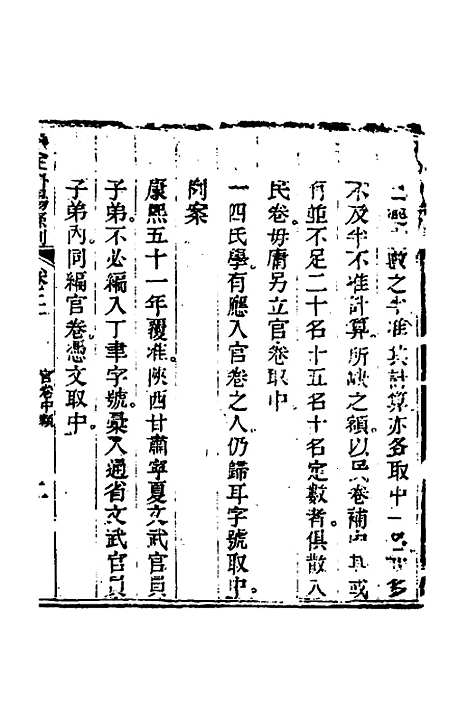 數之半准其計算亦各取中一名
不及半不准計算所缺之額以民卷補中其或
有並不足二十名十五名十名定數者俱散入
民卷毋庸另立官卷取中
一四氏學有應入官卷之人仍歸耳字號取中
例案
康熙五十一年覆准陝西甘肅寧夏文武官員
子弟不必編入丁聿字號彙入通省文武官員
子弟內同編官卷憑文取中
欽定科場條例 卷二十 官卷中額 二